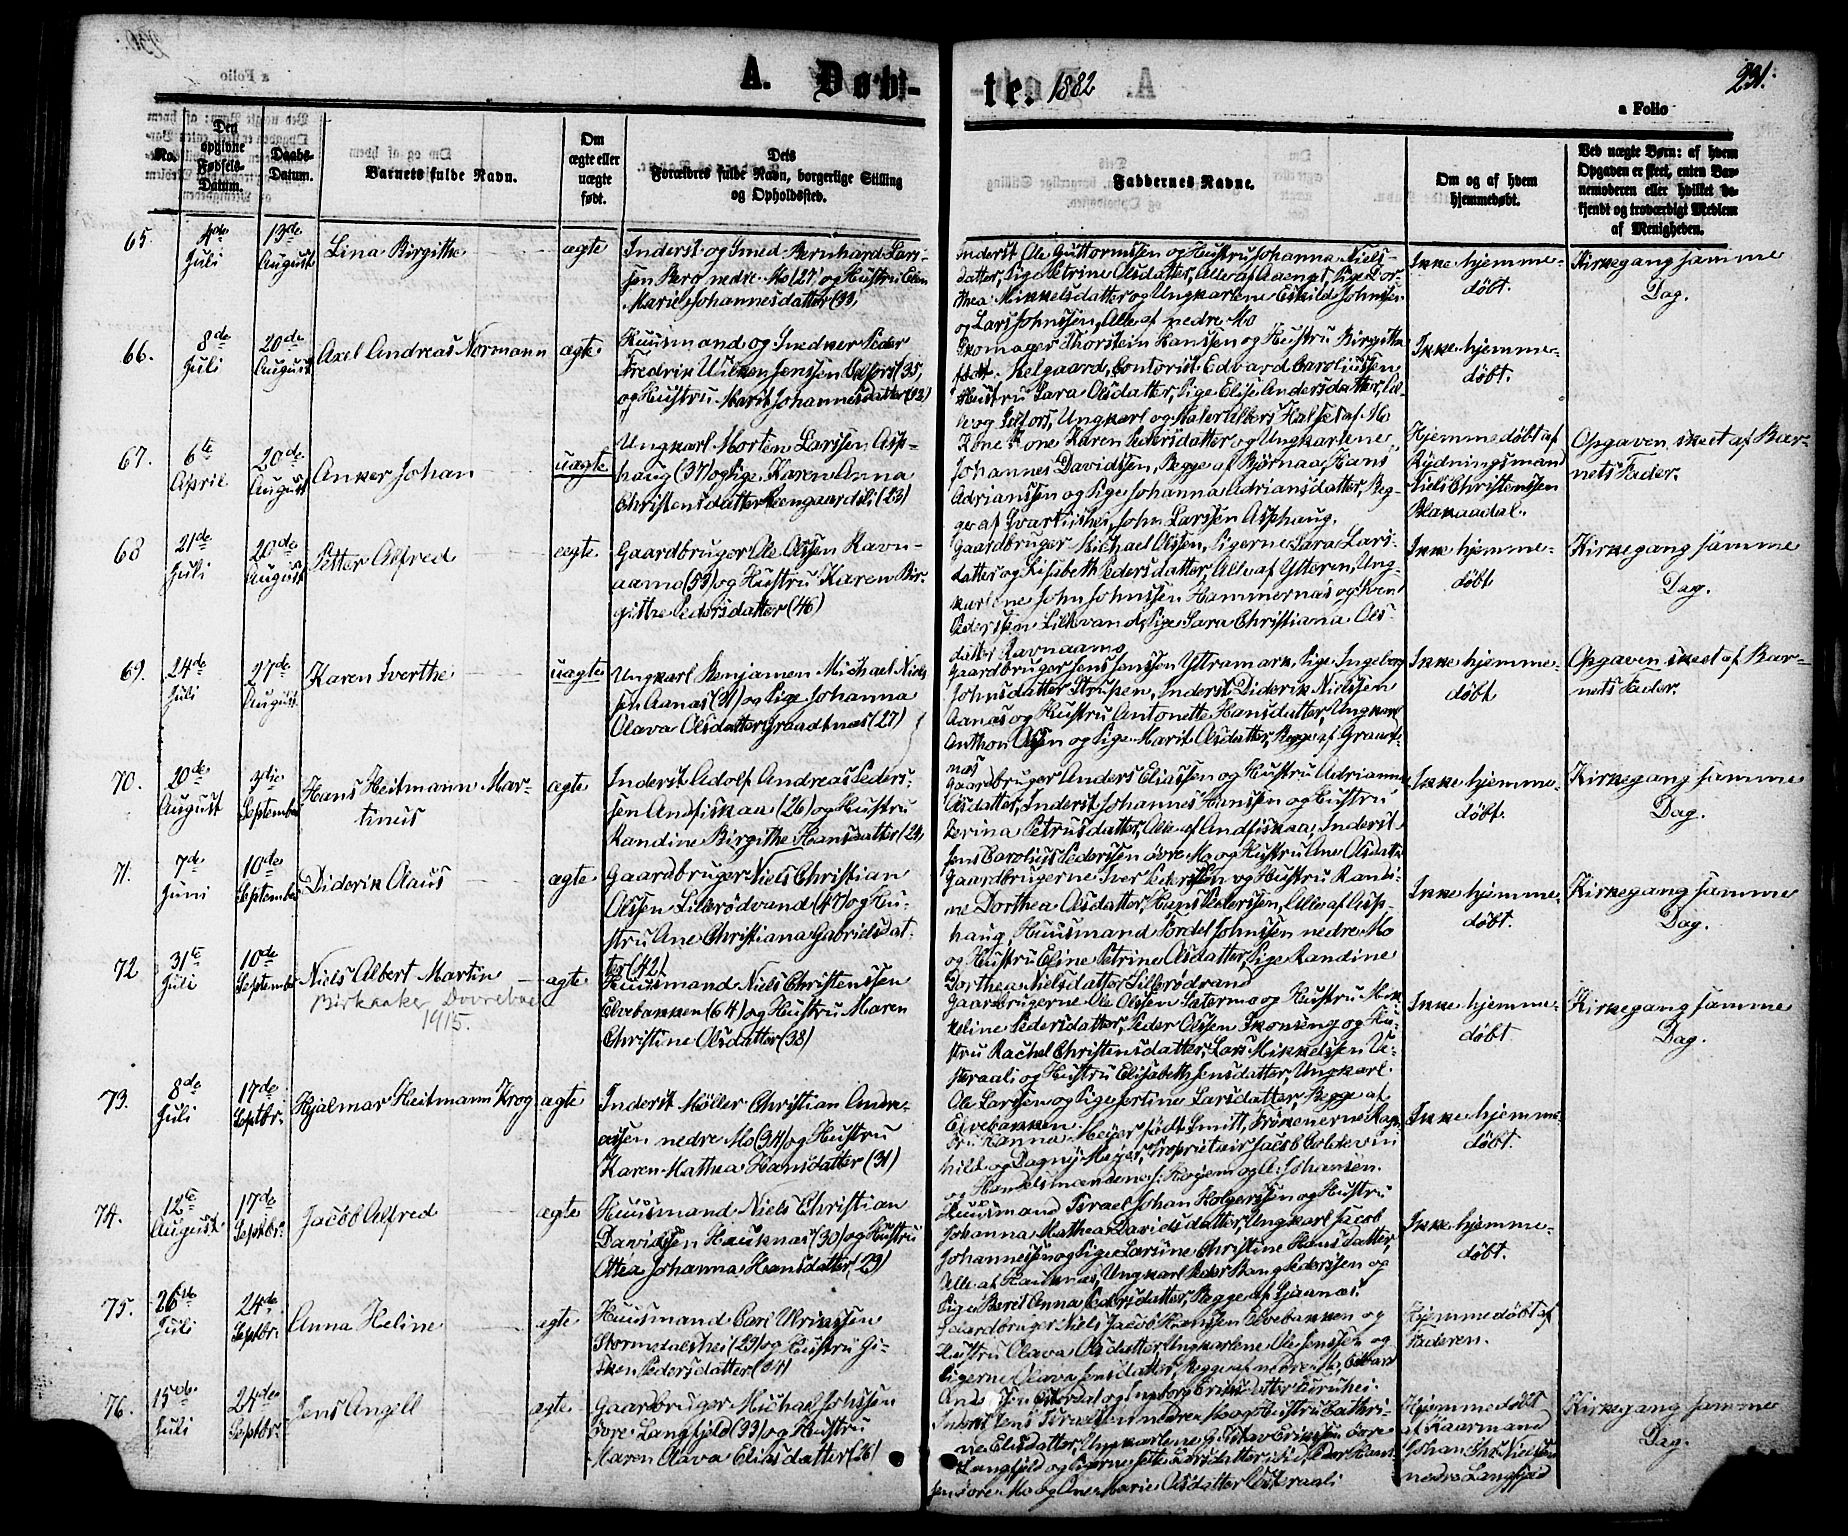 A. Døbte. 1882
231.
a Folio
No.
Den opgivne Fødsels-Datum.
Daabs-Datum.
Barnets fulde Navn.
Om ægte eller uægte født.
Dets Forældres fulde Navn, borgerlige Stilling og Opholdssted.
Faddernes Navne.
Om og af hvem hjemmedøbt.
Ved uægte Børn: af hvem Opgaven er skeet, enten Barnemoderen eller hvilket bekjendt og troværdigt Medlem af Menigheden.
65.
4de Juli
13de August
Lina Birgithe
ægte
Inderst og Smed Bernhard Lars-
sen Berg nedre Mo (27) og Hustru Elen
Marie Johannesdatter (33)
Inderst Ole Guttormssen og Hustru Johanna Niels-
datter, Pige Petrine Olsdatter, Alle af Aaenget, Pige Dor-
thea Mikkelsdatter og Ungkarlene Eskild Johnssen
og Lars Johnssen, Alle af nedre Mo
Ikke hjemme-
døbt.
Kirkegang samme
Dag.
66.
8de Juli
20de August
Axel Andreas Normann
ægte
Huusmand og Snedker Peder
Fredrik Jenssen (35)
og Hustru Marit Johannesdatter (42)
Skomager Thorstein Hanssen og Hustru Birgitha
født Helgaard, Contorist Edvard Caroliussen
Hustru Sara Olsdatter, Pige Elise Andersdatter,
Selfors, Ungkarl og Maler Albert Halseth af Mo
Ikke hjemme-
døbt.
67.
6te April
20de August
Anker Johan
uægte
Ungkarl Morten Larssen Asp-
haug (37) og Pige Karen Anna
Christensdatter Bengaardsli (23)
Kone Karen Pedersdatter og Ungkarlene
Johannes Davidssen, Begge af Bjørnaa, Hans
Adrianssen og Pige Johanna Adriansdatter, Beg-
ge af Svartishei, John Larssen Asphaug.
Hjemmedøbt af
Rydningsmand
Niels Christenssen
Blakaadal.
Opgaven skeet af Bar-
nets Fader.
68
21de Juli
20de August
Petter Alfred
ægte
Gaardbruger Ole Olssen Ravn-
aamo (53) og Hustru Karen Bir-
gitthe Pedersdatter (46)
Gaardbruger Michael Olssen, Pigerne Sara Lars-
datter og Lisabeth Pedersdatter, Alle af Ytteren, Ung-
karlene John Johnssen Hammernæs og Sven
Pederssen Lillevand, Pige Sara Christiana Ols-
datter Ravnaamo
Ikke hjemme-
døbt
Kirkegang samme
Dag.
69.
24de Juli
27de August
Karen Sverthe
uægte
Ungkarl Benjamen Michael Niels-
sen Aanæs (31) og Pige Johanna
Olava Olsdatter Graadtnæs (27)
Gaardbruger Jens Jenssen Yttramark, Pige Ingeborg
Johnsdatter Strupen, Inderst Diderik Nielssen
Aanæs og Hustru Antonette Hansdatter, Ungkarl
Anthon Olssen og Pige Marit Olsdatter, Begge af Graat-
næs
Ikke hjemme-
døbt
Opgaven skeet af Bar-
nets Fader.
70.
20de August
3die September
Hans Heitmann Mar-
tinus
ægte
Inderst Adolf Andreas Peders-
sen Andfiskaa (26) og Hustru
Randine Birgithe Hansdatter (24)
Gaardbruger Anders Eliassen og Hustru Adrianna
Olsdatter, Inderst Johannes Hanssen og Hustru
Berina Petrusdatter, Alle af Andfiskaa, Inderst
Jens Carolius Pederssen øvre Mo og Hustru Ane Olsdatter
Ikke hjemme-
døbt.
Kirkegang samme
Dag.
71.
7de Juni
10de September
Diderik Olaus
ægte
Gaardbruger Niels Christian
Olssen Lillerødvand (47) og Hu-
stru Ane Christiana Gabrielsdat-
ter (42)
Gaardbrugerne Iver Pederssen og Hustru Randi-
ne Dorthea Olsdatter, Hans Pederssen, Alle af Asp-
haug, Huusmand Tordel Johnssen nedre Mo
og Hustru Eline Petrine Olsdatter, Pige Randine
Dorthea Nielsdatter Lillerødvand
Ikke hjemme-
døbt.
Kirkegang samme
Dag.
72
31te Juli
10de September
Niels Albert Martin
Birkaaker Dovrebane
1915.
ægte
Huusmand Niels Christenssen
Elvebakken (64) og Hustru Maren
Christine Olsdatter (38)
Gaardbrugerne Ole Olssen Sætermo og Hustru Mik-
keline Pedersdatter, Peder Olssen Skonseng og Hu-
stru Rachel Christensdatter, Lars Mikkelssen Ve-
steraali og Hustru Elisabeth Jensdatter, Ungkarl
Ole Larssen og Pige Jertine Larsdatter, Begge af
Elvebakken
Ikke hjemme-
døbt.
Kirkegang samme
Dag.
73.
8de Juli
17de Septbr.
Hjalmar Heitmann Krog
ægte
Inderst Møller Christian Andre-
assen nedre Mo (34) og Hustru
Karen Mathea Hansdatter (31)
Fru Hanna Meyer født Smitt, Frøknerne Rag-
hild og Dagny Meyer, Proprietair Jacob Coldevin
og Handelsmændene J. Hagem og A. Johansen.
Ikke hjemme-
døbt.
74.
12te August
17de Septbr.
Jacob Alfred
ægte
Huusmand Niels Christian
Davidssen Hauknæs (30) og Hustru
Ottea Johanna Hansdatter (29)
Huusmand Israel Johan Holgerssen og Hustru
Johanna Mathea Davidsdatter, Ungkarl Jacob
Johannessen og Pige Larsine Christine Hansdatter,
Alle af Hauknæs, Ungkarl Peder Bang Pederssen og
Pige Beret Anna Pedersdatter, Begge af Sjaanæs.
Ikke hjemme-
døbt.
75.
26de Juli
24de Septbr.
Anna Heline
ægte
Huusmand Carl Ulrikssen
Stormdalshei (29) og Hustru Gi-
sken Pedersdatter (34)
Gaardbruger Niels Jacob Hanssen Elvebakken og
Hustru Olava Olsdatter, Ungkarlene Ole Jenssen og
Pigerne Olava Jensdatter, Begge af nedre Mo,
Hjemmedøbt af
Faderen.
76.
15de Juli
24de Septbr.
Jens Angell
ægte
Gaardbruger Michael Johssen
øvre Langfjeld (33) og Hustru
Maren Olava Eliasdatter (26)
Inderst Jens Israelssen nedre Mo og Hustru Cathri-
ne Elisdatter, Ungkarlene Gustav Erikssen øvre
Langfjeld og
øvre Mo og Ane Marie Olsdatter Vesteraali
Hjemmedøbt
af Kaarmand
Johan Chr. Nielssen
nedre Langfjeld
Kirkegang samme
Dag.